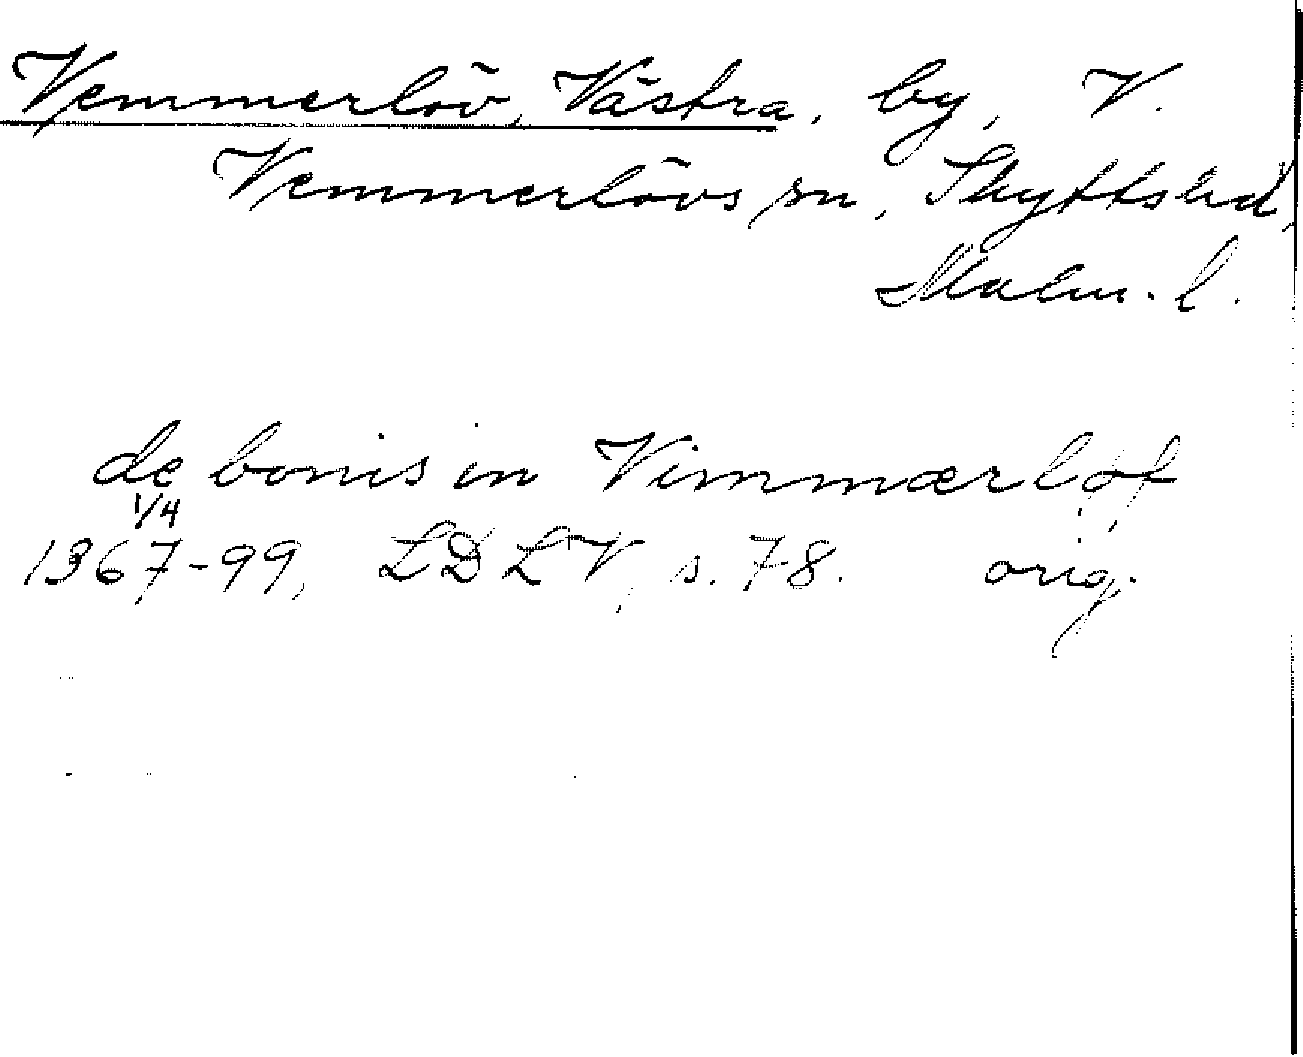 Vemmerlöv, Västra, by, V.
Vemmerlövs sn, Skytts hd,
Malm. l.
de bonis in Vimmærløf
1/4
1367-99, LDLV, s. 78. orig.